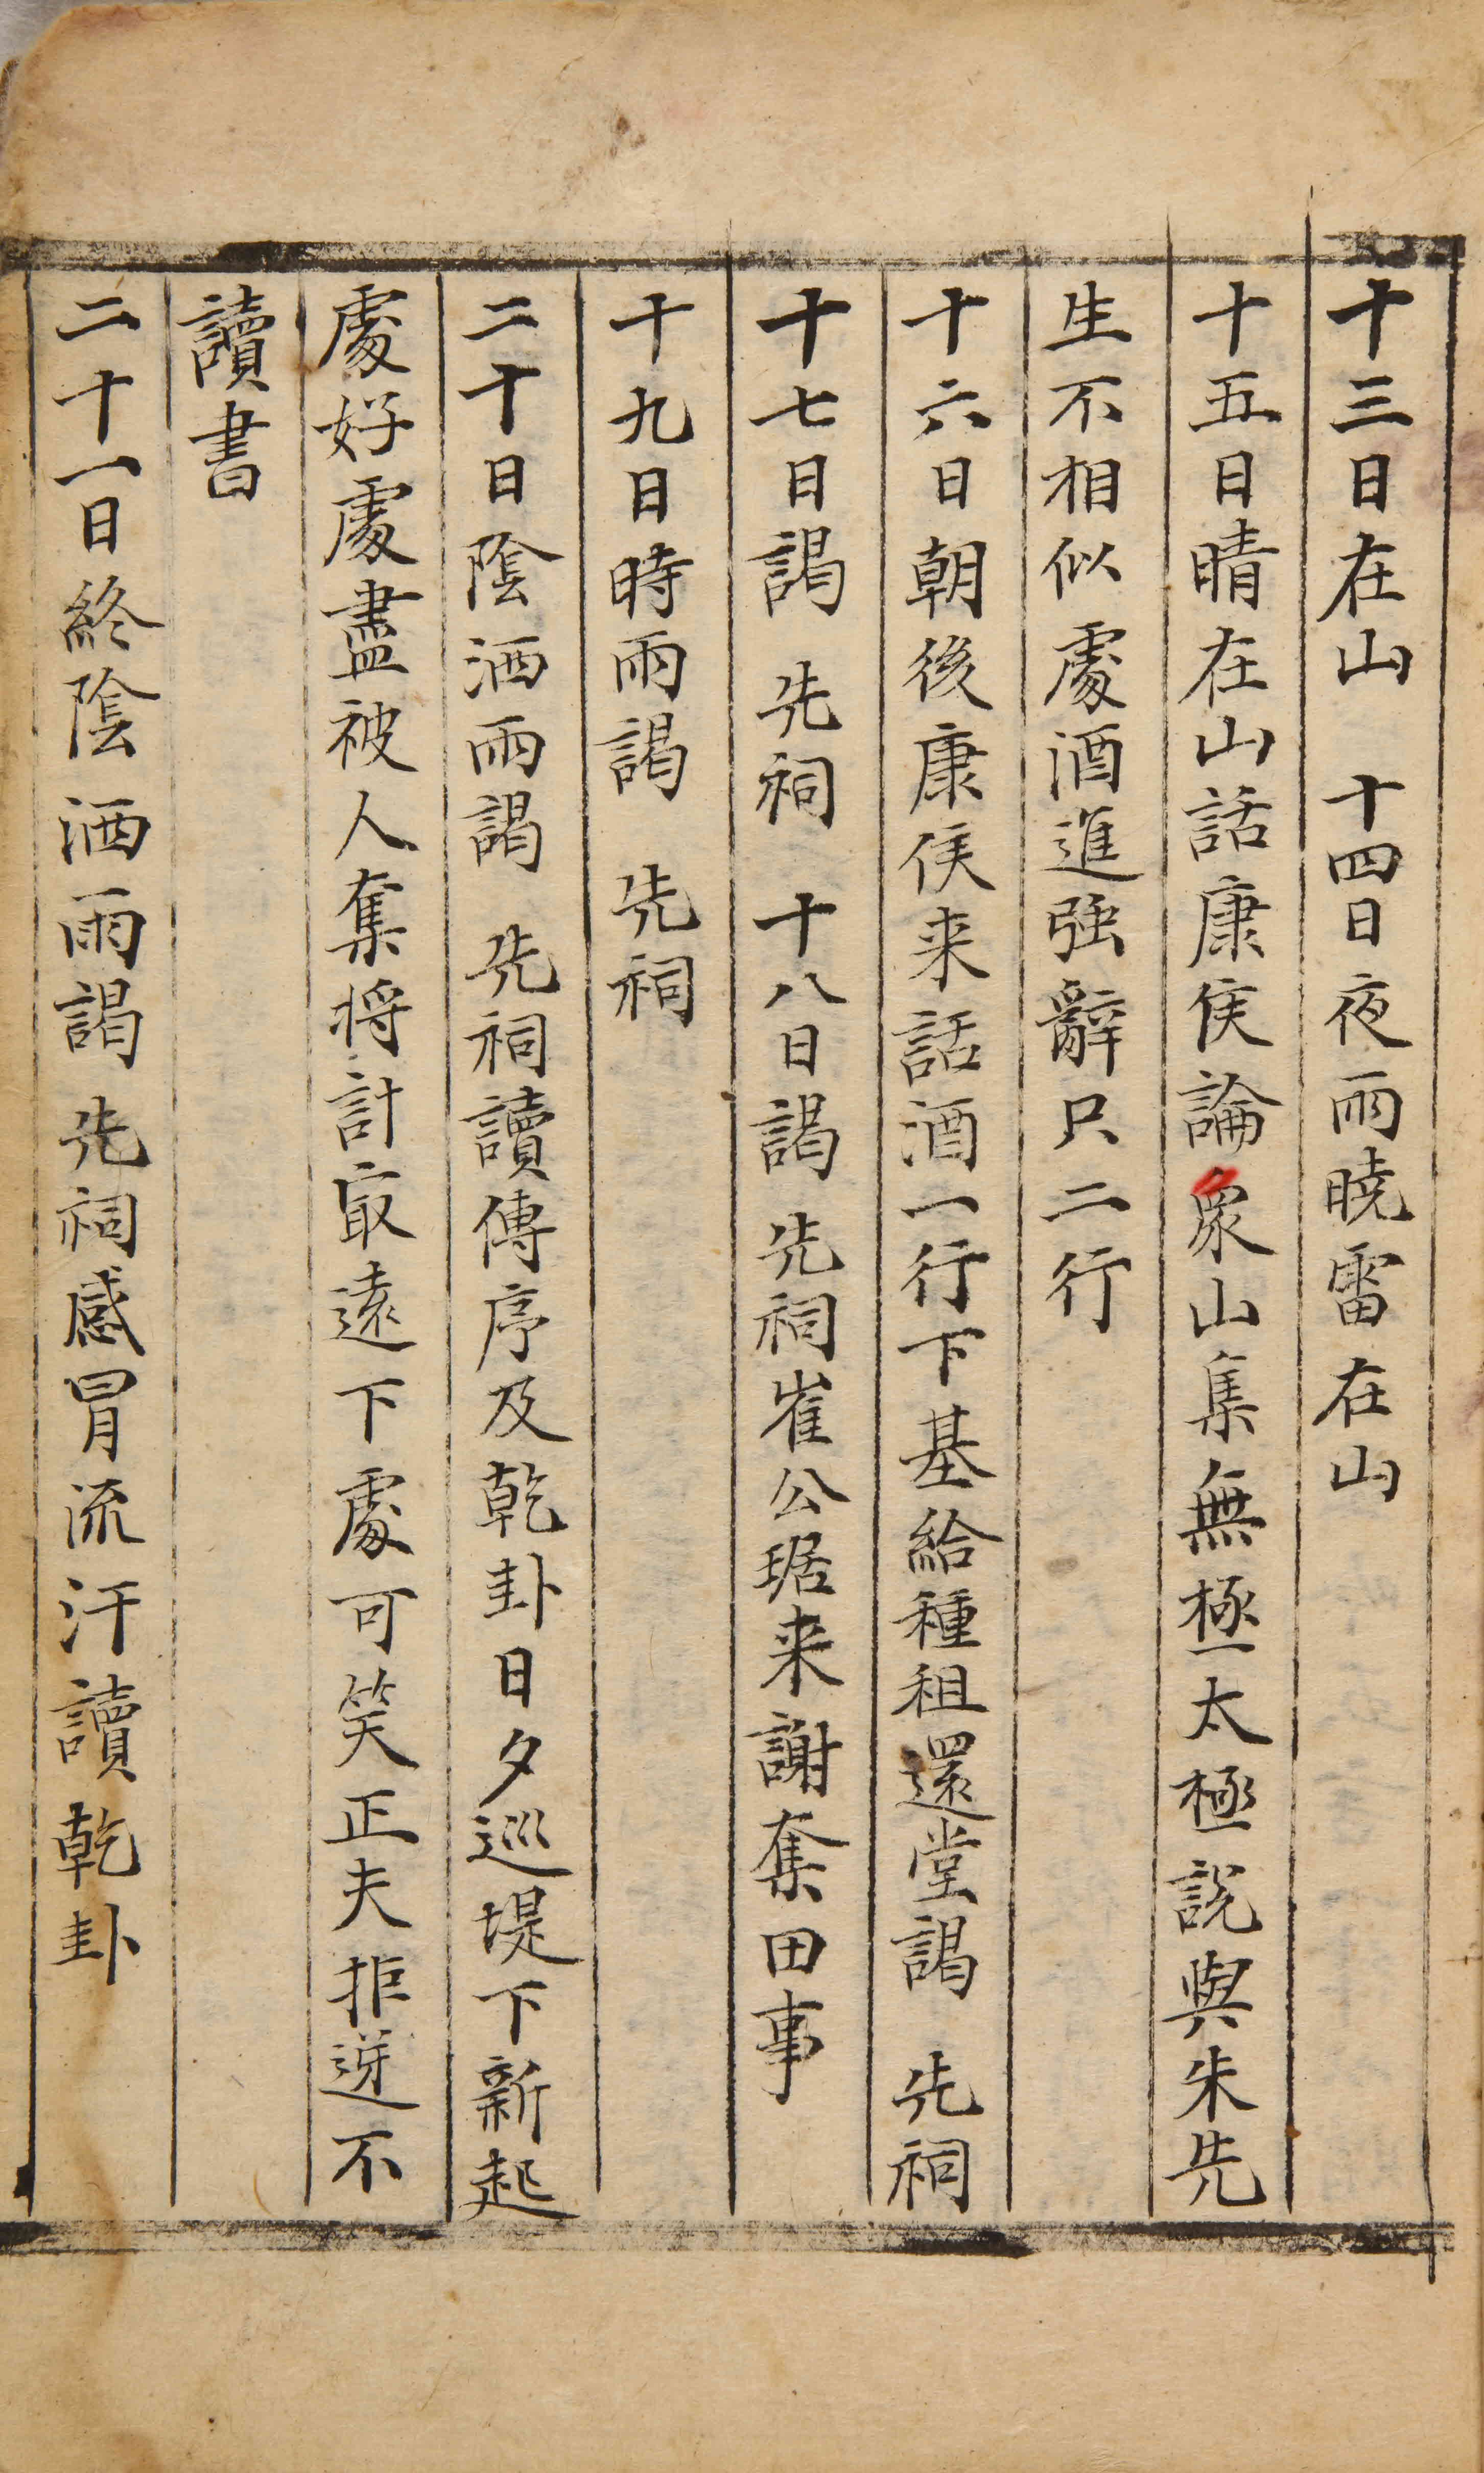 十三日在山　十四日夜雨曉雷在山
十五日晴在山話康侯論象山集無極太極說與朱先
生不相似處酒進強辭只二行
十六日朝後康侯来話酒一行下基給種租還堂謁　先祠
十七日謁　先祠　十八日謁　先祠崔公琚来謝奪田事
十九日時雨謁　先祠
二十日陰洒雨謁　先祠讀傳序及乾卦日夕巡堤下新起
處好處盡被人奪将計㝡遠下處可笑正夫拒逆不
讀書
二十一日終陰洒雨謁　先祠感冒流汗讀乾卦